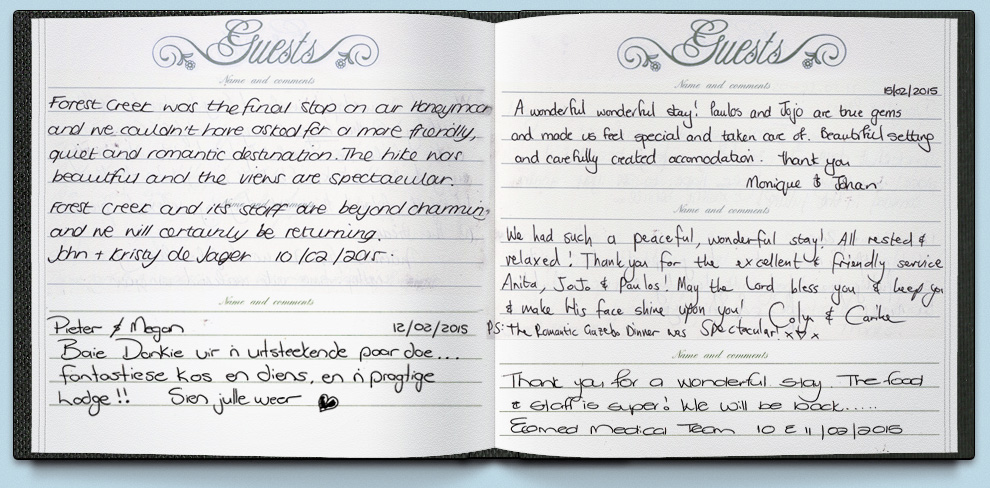 Guests
Name and comments
Forest Creek was the final stop on our Honeymoon
and we couldn't have asked for a more friendly,
quiet and romantic destination. The hike was
beautiful and the views are spectacular.
Forest Creek and its staff are beyond charming
and we will certainly be returning.
John + Kristy de Jager 10/02/2015.
Name and comments
Pieter & Megan 12/02/2015
Baie Dankie vir 'n uitstekende paar dae....
fantastiese kos en diens, en 'n pragtige
Lodge!! Sien julle weer
Guests
Name and comments
15/02/2015
A wonderful wonderful stay! Paulos and Jojo are true gems
and made us feel special and taken care of. Beautiful setting
and carefully created accomodation. Thank you
Monique & Johan
Name and comments
We had such a peaceful, wonderful stay! All rested &
relaxed! Thank you for the excellent & friendly service
Anita, JoJo & Paulos! May the Lord bless you & keep you
& make His face shine upon you! Colyn & Carike
P.S: The Romantic Gazebo Dinner was Spectacular! x x
Name and comments
Thank you for a wonderful stay. The food
& staff is super! We will be back.....
Medical Team 10 & 11/02/2015